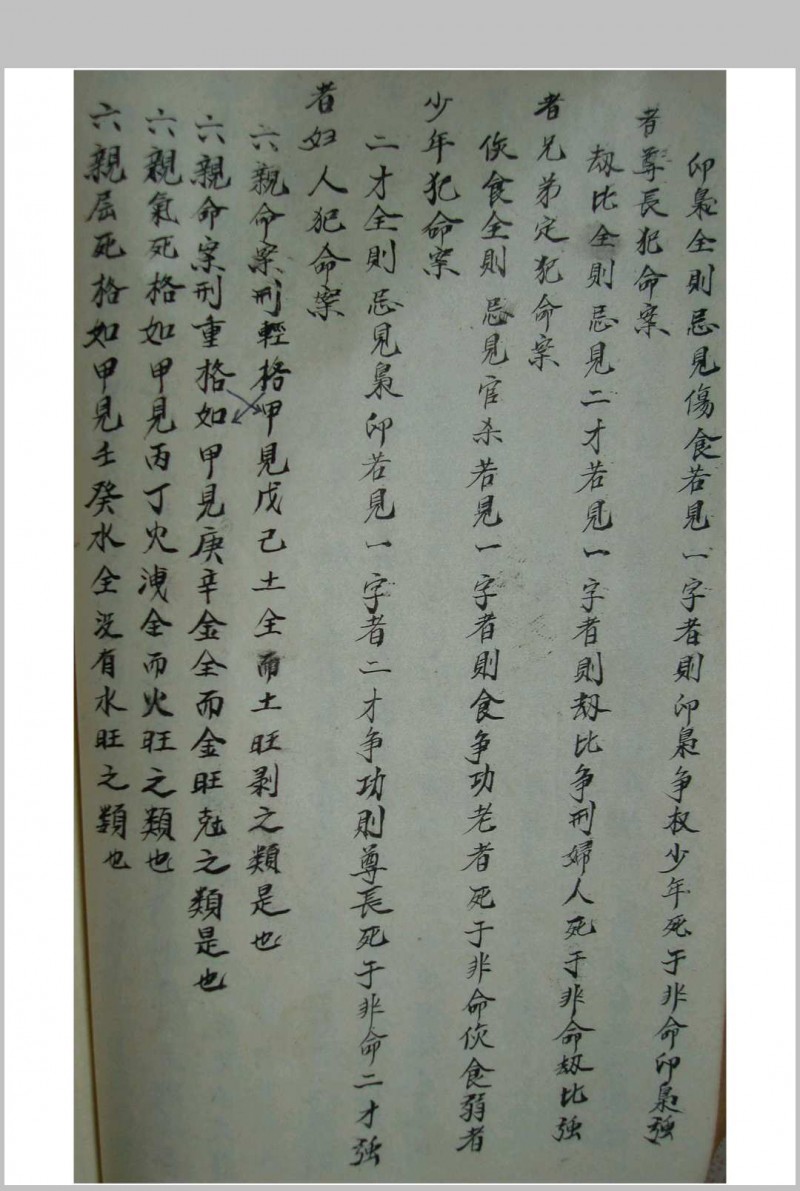 印梟全則忌見傷食若見一字者則印梟争权少年死于非命印梟強
者尊長犯命案
劫比全則忌見二才若見一字者則劫比争刑婦人死于非命劫比強
者兄弟定犯命案
伤食全則忌見官杀若見一字者則食争功老者死于非命伤食弱者
少年犯命案
二才全則忌見梟印若見一字者二才争功則尊長死于非命二才強
者妇人犯命案
六親命案刑輕格甲見戊己土全而土旺剥之類是也
六親命案刑重格如甲見庚辛金全而金旺尅之類是也
六親氣死格如甲見丙丁火洩全而火旺之類也
六親屈死格如甲見壬癸水全没有水旺之類也